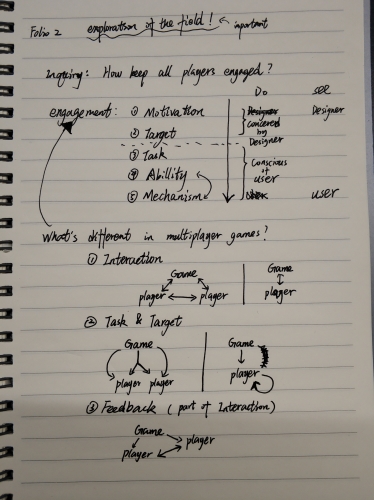 Folio 2 exploration of the field! ← inportant
Inquiry: How keep all players engaged?
Do see
engagement: ① Motivation Designer Designer
② Target concered by
Designer
③ Task Conscious
④ Abillity of
user
⑤ Mechanism user
What's different in multiplayer games?
① Interaction
Game Game
player player player
② Task & Target
Game Game
player player player
③ Feedback (part of Interaction)
Game player
player